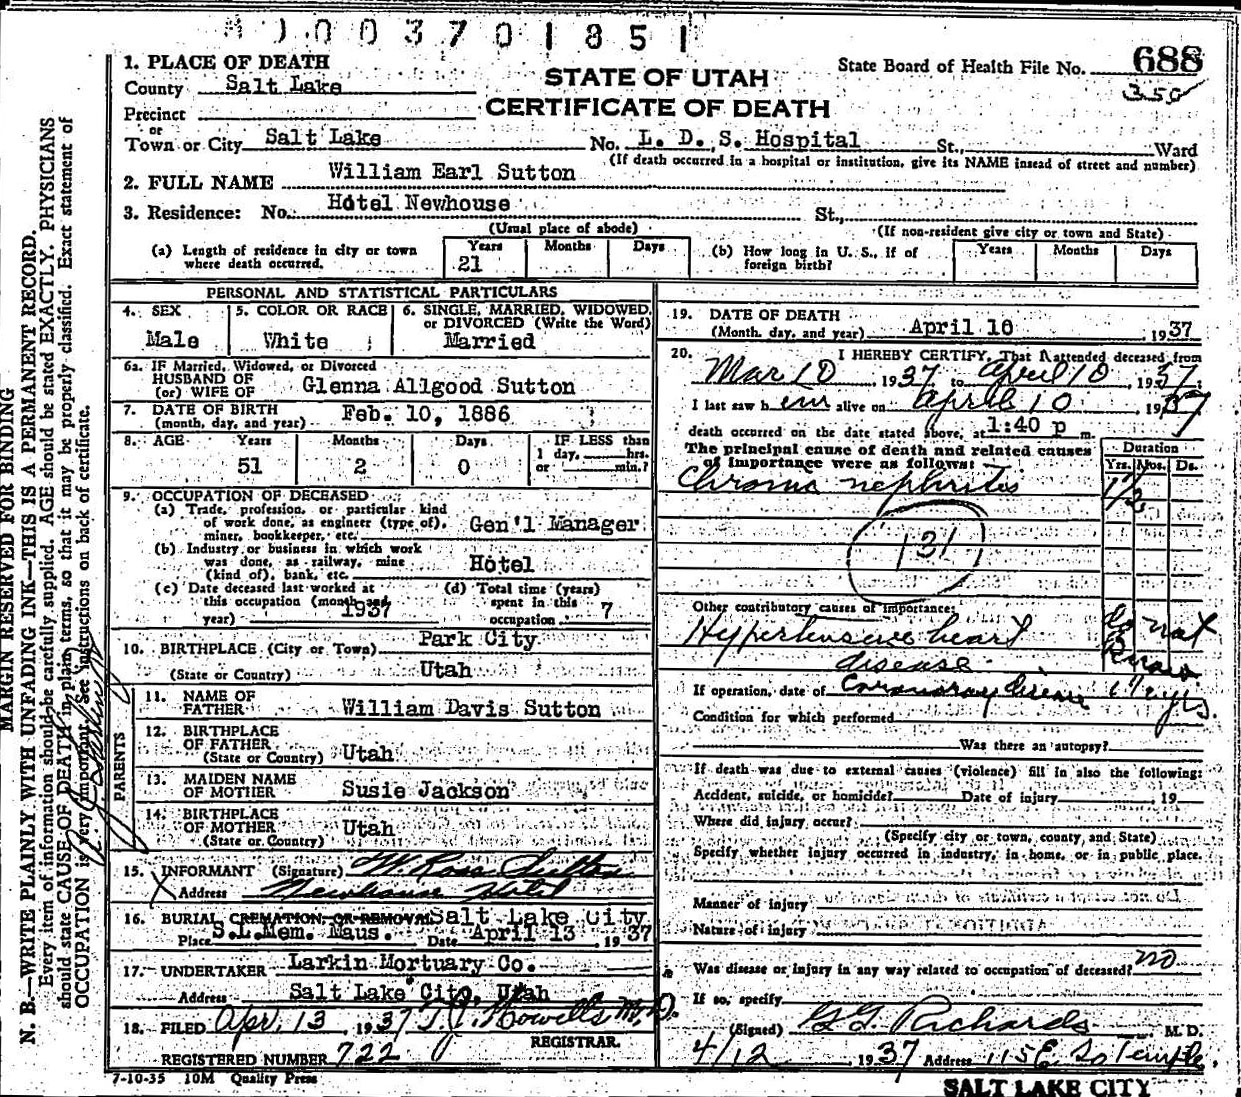 1003701851
688
350
STATE OF UTAH
CERTIFICATE OF DEATH
State Board of Health File No.
1. PLACE OF DEATH
County Salt Lake
Precinct
or
Town or City Salt Lake No. L. D. S. Hospital St., Ward
(If death occurred in a hospital or institution, give its NAME insead of street and number)
2. FULL NAME William Earl Sutton
3. Residence: No. Hotel Newhouse St.,
(Usual place of abode)
(If non-resident give city or town and State)
(a) Length of residence in city or town where death occurred. Years 21 Months Days
(b) How long in U. S., if of foreign birth? Years Months Days
PERSONAL AND STATISTICAL PARTICULARS
4. SEX Male
5. COLOR OR RACE White
6. SINGLE, MARRIED, WIDOWED, or DIVORCED (Write the Word) Married
6a. IF Married, Widowed, or Divorced
HUSBAND OF
(or) WIFE OF Glenna Allgood Sutton
7. DATE OF BIRTH
(month, day, and year) Feb. 10, 1886
8. AGE Years 51 Months 2 Days 0
IF LESS than
1 day, hrs.
or min.?
9. OCCUPATION OF DECEASED
(a) Trade, profession, or particular kind
of work done, as engineer (type of),
miner, bookkeeper, etc. Gen'l Manager
(b) Industry or business in which work
was done, as railway, mine
(kind of), bank, etc. Hotel
(c) Date deceased last worked at
this occupation (month and
year) 1937
(d) Total time (years)
spent in this
occupation 7
10. BIRTHPLACE (City or Town) Park City
(State or Country) Utah
PARENTS
11. NAME OF
FATHER William Davis Sutton
12. BIRTHPLACE
OF FATHER
(State or Country) Utah
13. MAIDEN NAME
OF MOTHER Susie Jackson
14. BIRTHPLACE
OF MOTHER
(State or Country) Utah
15. INFORMANT (Signature) W. Ross Sutton
X Address Newhouse Hotel
16. BURIAL CREMATION OR REMOVAL Salt Lake City
Place S.L.Mem. Maus. Date April 13, 1937
17. UNDERTAKER Larkin Mortuary Co.
Address Salt Lake City, Utah
18. FILED Apr. 13, 1937 T. J. Howells M.D.
REGISTRAR.
REGISTERED NUMBER 722
7-10-35 10M Quality Press
19. DATE OF DEATH
(Month, day, and year) April 10, 1937
20. I HEREBY CERTIFY, That I attended deceased from
Mar 10, 1937 to April 10, 1937.
I last saw h em alive on April 10 1937
death occurred on the date stated above, at 1:40 p m.
The principal cause of death and related causes
of importance were as follows:
Duration
Yrs. Mos. Ds.
Chronic nephritis 1 1/2
131
Other contributory causes of importance:
Hypertensive heart disease do not know
If operation, date of Coronary disease 1 1/2 yrs.
Condition for which performed
Was there an autopsy?
If death was due to external causes (violence) fill in also the following:
Accident, suicide, or homicide? Date of injury 19
Where did injury occur?
(Specify city or town, county, and State)
Specify whether injury occurred in industry, in home, or in public place.
Manner of injury
Nature of injury
Was disease or injury in any way related to occupation of deceased? no
If so, specify
(Signed) G. G. Richards M. D.
4/12 1937 Address 115 E. So Temple.
SALT LAKE CITY
MARGIN RESERVED FOR BINDING
N. B.—WRITE PLAINLY WITH UNFADING INK—THIS IS A PERMANENT RECORD.
Every item of information should be carefully supplied. AGE should be stated EXACTLY. PHYSICIANS
should state CAUSE OF DEATH in plain terms, so that it may be properly classified. Exact statement of
OCCUPATION is very important. See instructions on back of certificate.